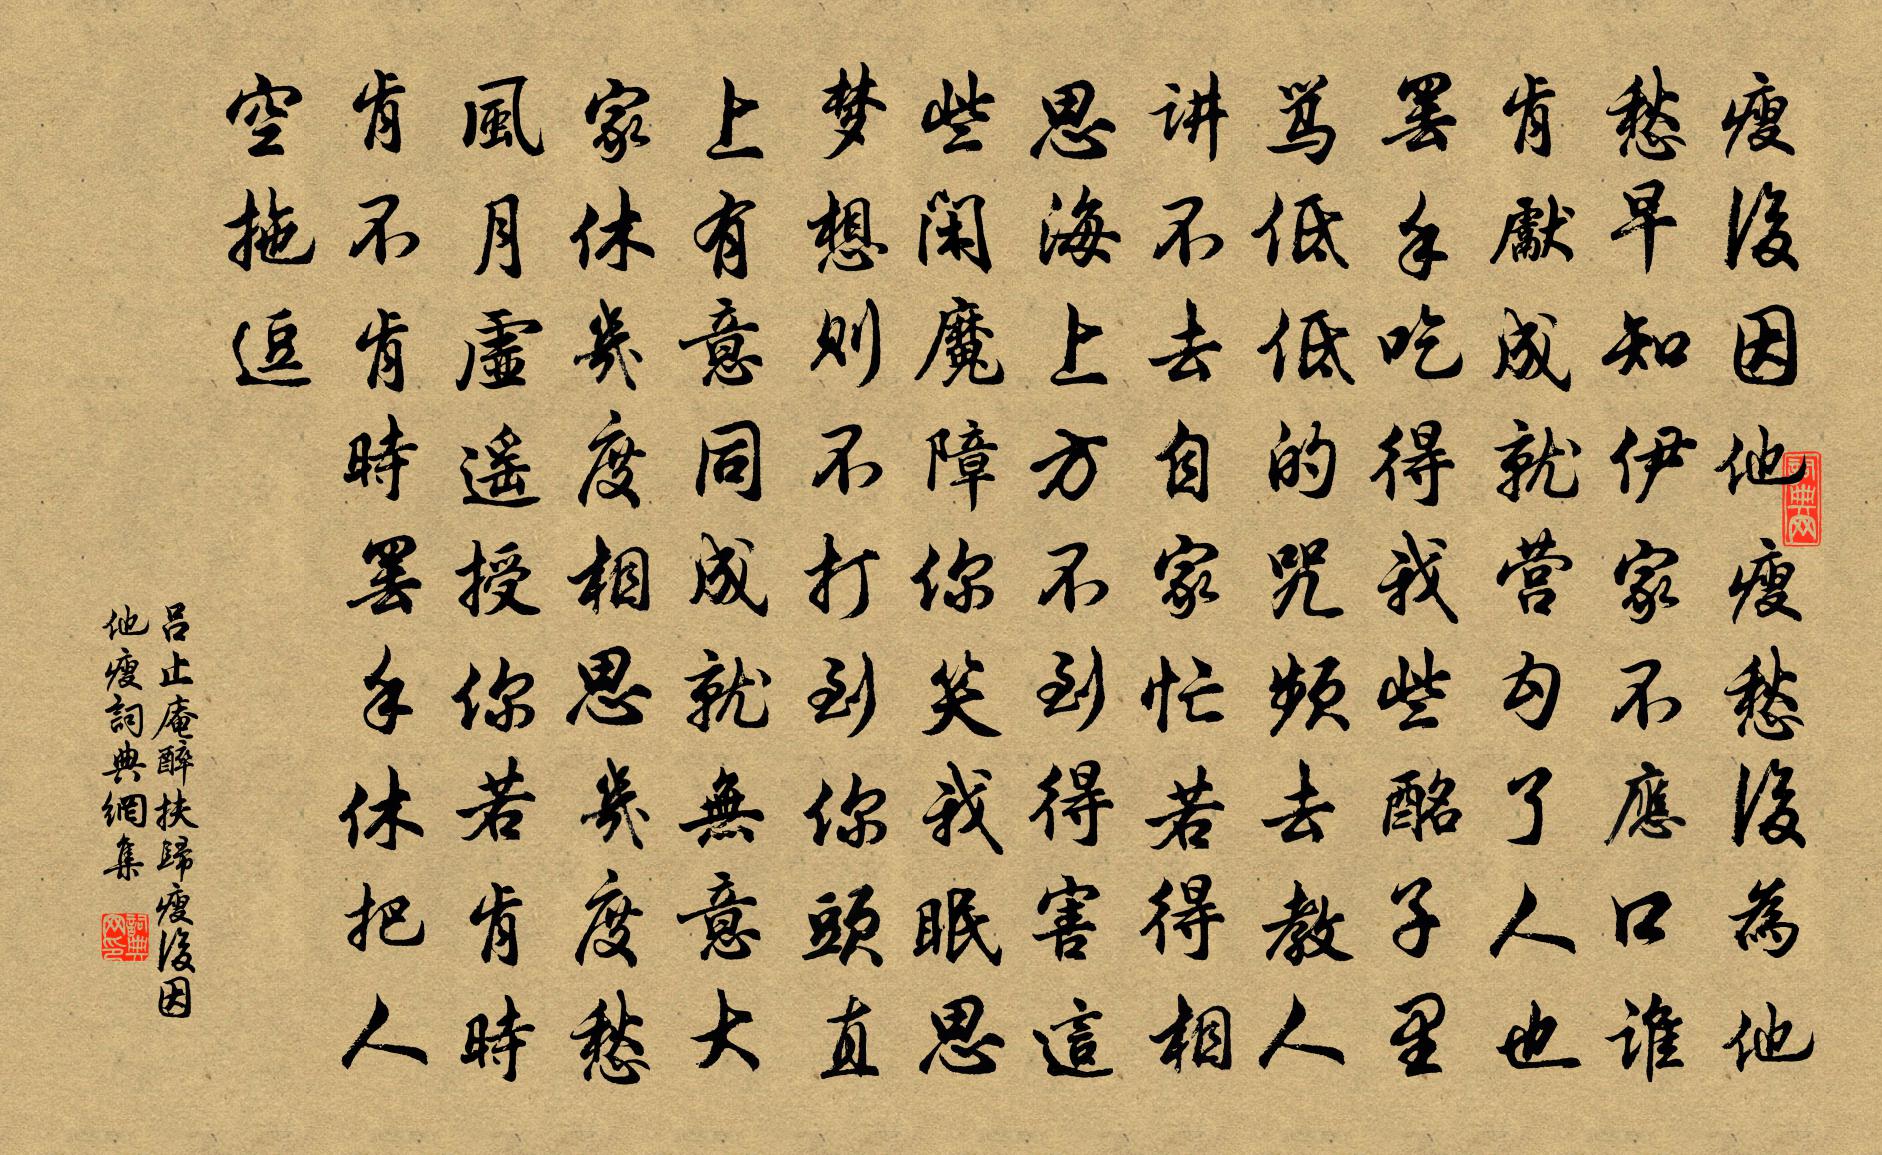 瘦後因他瘦愁後為他
愁早知伊家不應口誰
肯獻成就营勾了人也
罢手吃得我些酩子里
骂低低的咒频去教人
讲不去自家忙若得相
思海上方不到得害這
些闲魔障你笑我眠思
梦想则不打到你頭直
上有意同成就無意大
家休幾度相思幾度愁
風月虛遥授你若肯時
肯不肯時罢手休把人
空拖逗
吕止庵醉扶歸瘦後因
他瘦詞典網集